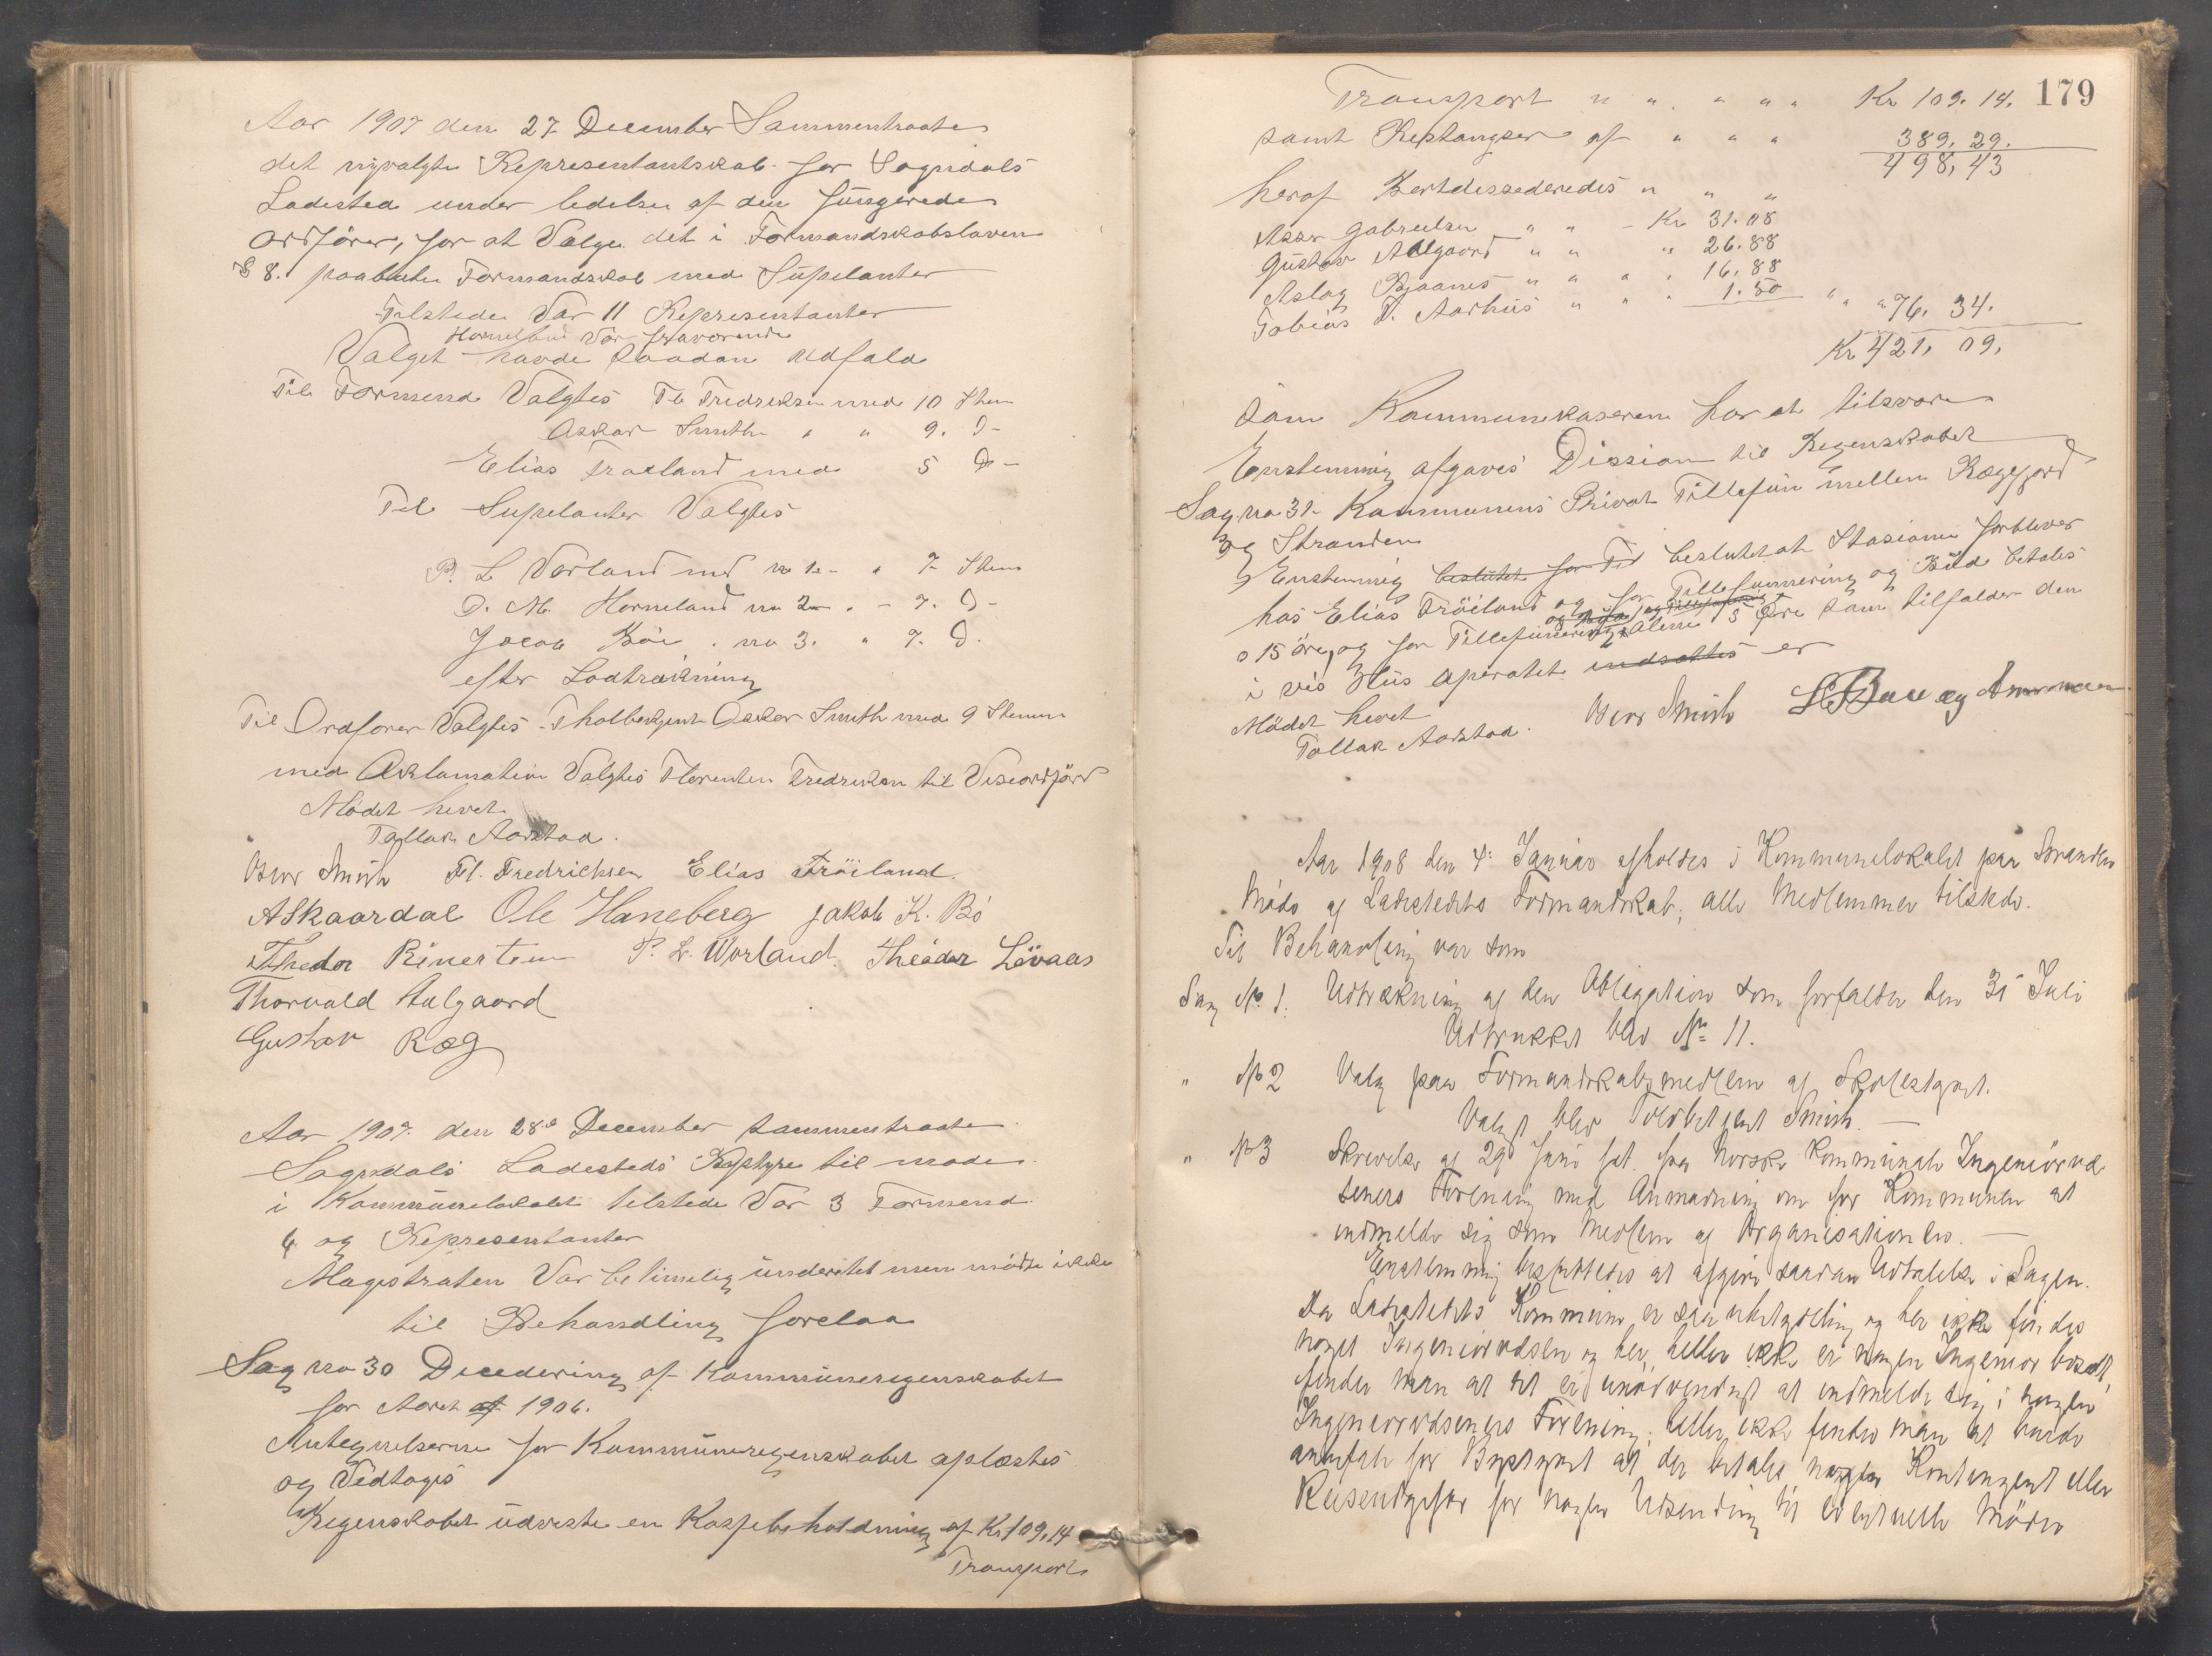 Aar 1907 den 27 December Sammentraate
det nyvalgte Representantskab for Sogndals
Ladested under ledelse af den fungerede
Ordförer, for at Valge det i Formandskabsloven
§ 8. paabudte Formandskab med Supelanter
Tilstede Var 11 Representanter
Horneland Var fraværende
Valget havde saadan udfald
Til Formend Valgtes Fl Fredreksen med 10 Stem
Oskar Smith " " 9. D-
Elias Fröeland med 5 D-
Til Supelanter Valgtes
P. L Vorland med no 1 - " 7 Stem
O. M. Horneland no 2 - " - 7. D-
Jacob Böe . no 3. " 7. D.
efter Lodtrækning
Til Ordforer Valgtes Tholbetjent Oskar Smith med 9 Stemme
med Aklamation Valgtes Florenten Fredreksen til Viseordförer
Mödet hevet
Tollak Aarstad.
Oscar Smith Fl. Fredrichsen Elias Fröiland.
A Skaardal Ole Haneberg Jakob K. Bö
Thedor Rinertsen P. L. Worland. Theodor Lövaas
Thorvald Aalgaard
Gustav Ræg
Aar 1907. den 28de December sammentraate
Sogndals Ladesteds Bystyre til møde
i Kommunelokalet tilstede Var 3 Formend
6 og Representanter
Magistraten Var betimelig underrettet men mödte ikke
til Behandling forelaa
Sag no 30 Decedering af Kommuneregenskabet
for Aaret af 1906.
Antegnelserne for Kommuneregenskabet oplæstes
og Vedtoges
Regenskabet udviste en Kassebeholdning af Kr 109,14
Transport
179
Transport " " " " " Kr 109. 14.
samt Restangser af " " " 389, 29.
498, 43
heraf Bortdessederedes " " "
Asser Gabrielsen " " - Kr 31.08
Gustav Aalgaard " " " 26.88
Aslag Bjaanes " " " " 16.88
Tobias T. Aarhus " " " 1.50 " " " 76. 34.
Kr 421, 09,
som Kommunekaseren har at tilsvare
Enstemmig afgaves Dission til Regenskabet
Sag no 31- Kommunens Privat Tillefun mellem Rægefjord
og Stranden
Enstemmig besluttet for Til beslutet at Stasionen forblever
hos Elias Fröiland og for Tillefunnering og Bud betales
o 15 öre, og for Tillefunnering alene 5 Öre som tilfalder den
i vis Hus aperatet indsattes er
Mödet hevet
Tollak Aarstad. Oscar Smith
Aar 1908 den 4. Januar afholdes i Kommunelokalet paa Stranden
Möde af Ladestedets Formandskab; alle Medlemmer tilstede.
Til Behandling var som
Sag No 1. Udtrækning af den Obligation som forfalder den 31 Juli
Udtrukket blev No 11.
" No 2 Valg paa Formandskabsmedlem af Skolestyret.
Valgt blev Toldbetjent Smith. —
" No 3 Skrivelse af 29 Juni f.a. fra Norske Kommunale Ingeniörvæ
senets Forening med Anmodning om for Kommunen at
indmelde sig som Medlem af Organisationen. —
Enstemmig besluttedes at afgive saadan Udtalelse i Sagen.
Da Ladestedets Kommune er saa ubetydelig og her ikke findes
noget Ingeniörvæsen og her heller ikke er nogen Ingeniör bosat,
finder man at det er unödvendigt at indmelde sig i nogen
Ingeniörvæsenets Forening; heller ikke finder man at burde
anbefale for Bystyret at der betales nogen Kontingent eller
Reiseudgifter for nogen Udsending til eventuelle Möder